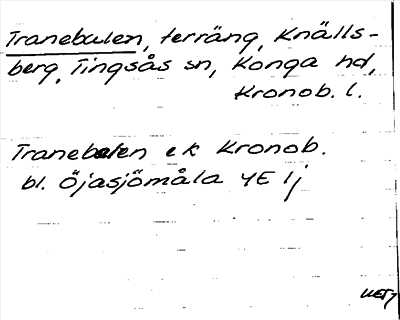 Tranebalen, terräng, Knälls-
berg, Tingsås sn, Konga hd,
Kronob. l.
Tranebalen ek Kronob.
bl. Öjasjömåla 4E 1j